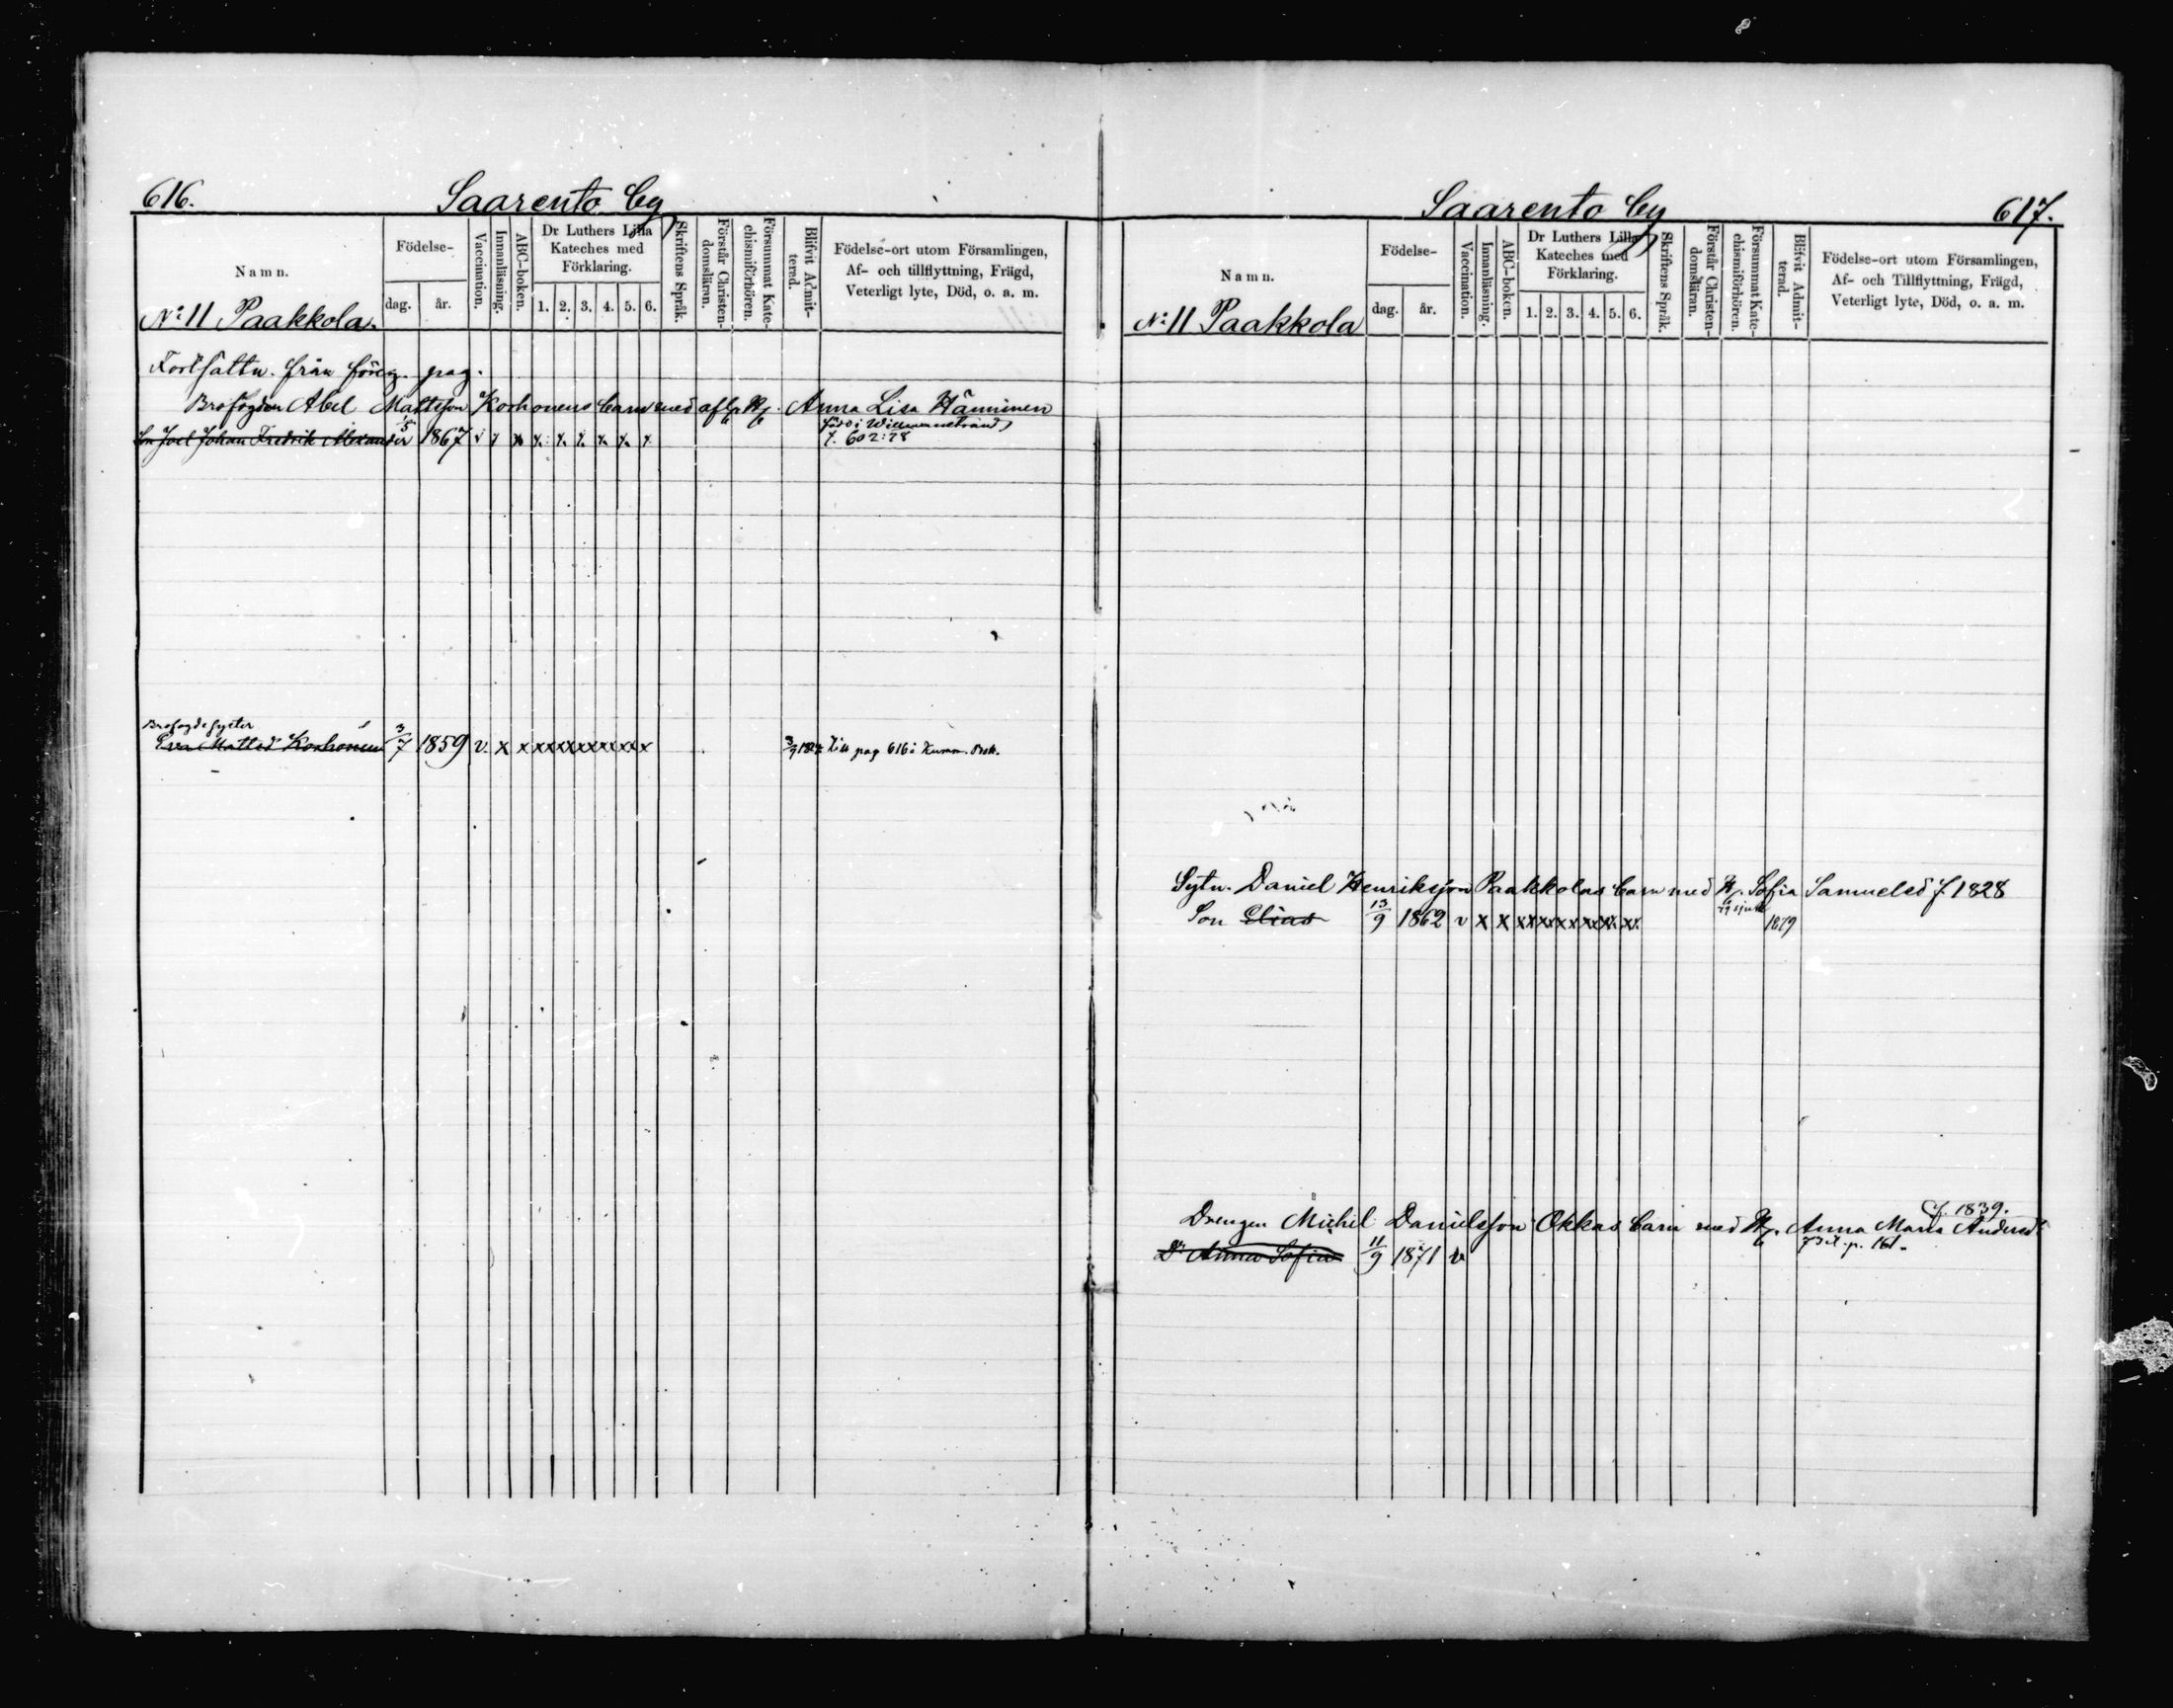 616.
Saarento by
Namn.
Födelse-
dag.
år.
Vaccination.
Innanläsning.
ABC-boken.
Dr Luthers Lilla
Kateches med
Förklaring.
1. 2. 3. 4. 5. 6.
Skriftens Språk.
Förstår Christen-
domsläran.
Försummat Kate-
chismiförhören.
Blifvit Admit-
terad.
Födelse-ort utom Församlingen,
Af- och tillflyttning, Frägd,
Veterligt lyte, Död, o. a. m.
No: 11 Paakkola.
Fortsättn. från föreg. pag.
Brofogden Abel Mattsson Korhonens barn med afl. H. Anna Lisa Hänninen
född i Willmanstrand
Son Joel Johan Fredrik Alexander 1867 v x x x x x x x x
f. 602:78
Brofogdesyster
Eva Mattsd Korhonen 3/7 1859 v. x x xx xx xx xx xx x till pag 616 i Komm. Bok.
Saarento by
617.
Namn.
Födelse-
dag.
år.
Vaccination.
Innanläsning.
ABC-boken.
Dr Luthers Lilla
Kateches med
Förklaring.
1. 2. 3. 4. 5. 6.
Skriftens Språk.
Förstår Christen-
domsläran.
Försummat Kate-
chismiförhören.
Blifvit Admit-
terad.
Födelse-ort utom Församlingen,
Af- och Tillflyttning, Frägd,
Veterligt lyte, Död, o. a. m.
No: 11 Paakkola
Sytn. Daniel Henriksson Paakkolas barn med H. Sofia Samuelsd f. 1828
Son Elias 13/9 1862 v x x xx xx xx xx xx xx. 1879
f. 1839.
Drengen Michel Danielsson Okkas barn med H. Anna Maria Andersd
Dr Anna Sofia 11/9 1871 v p. 161.